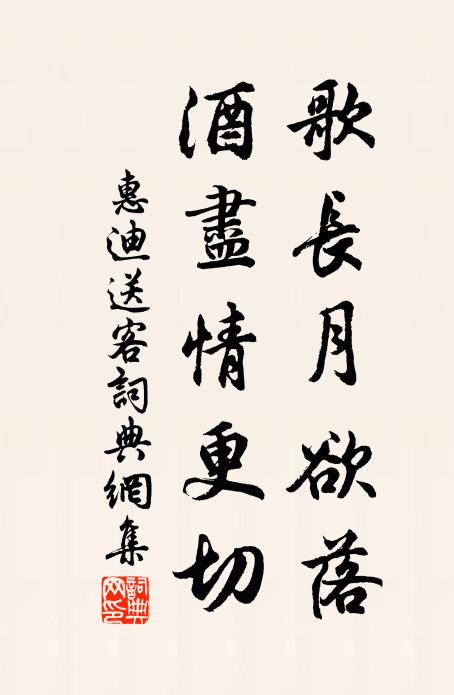 歌長月欲落
酒盡情更切
惠迪送客詞典網集
詞典網印